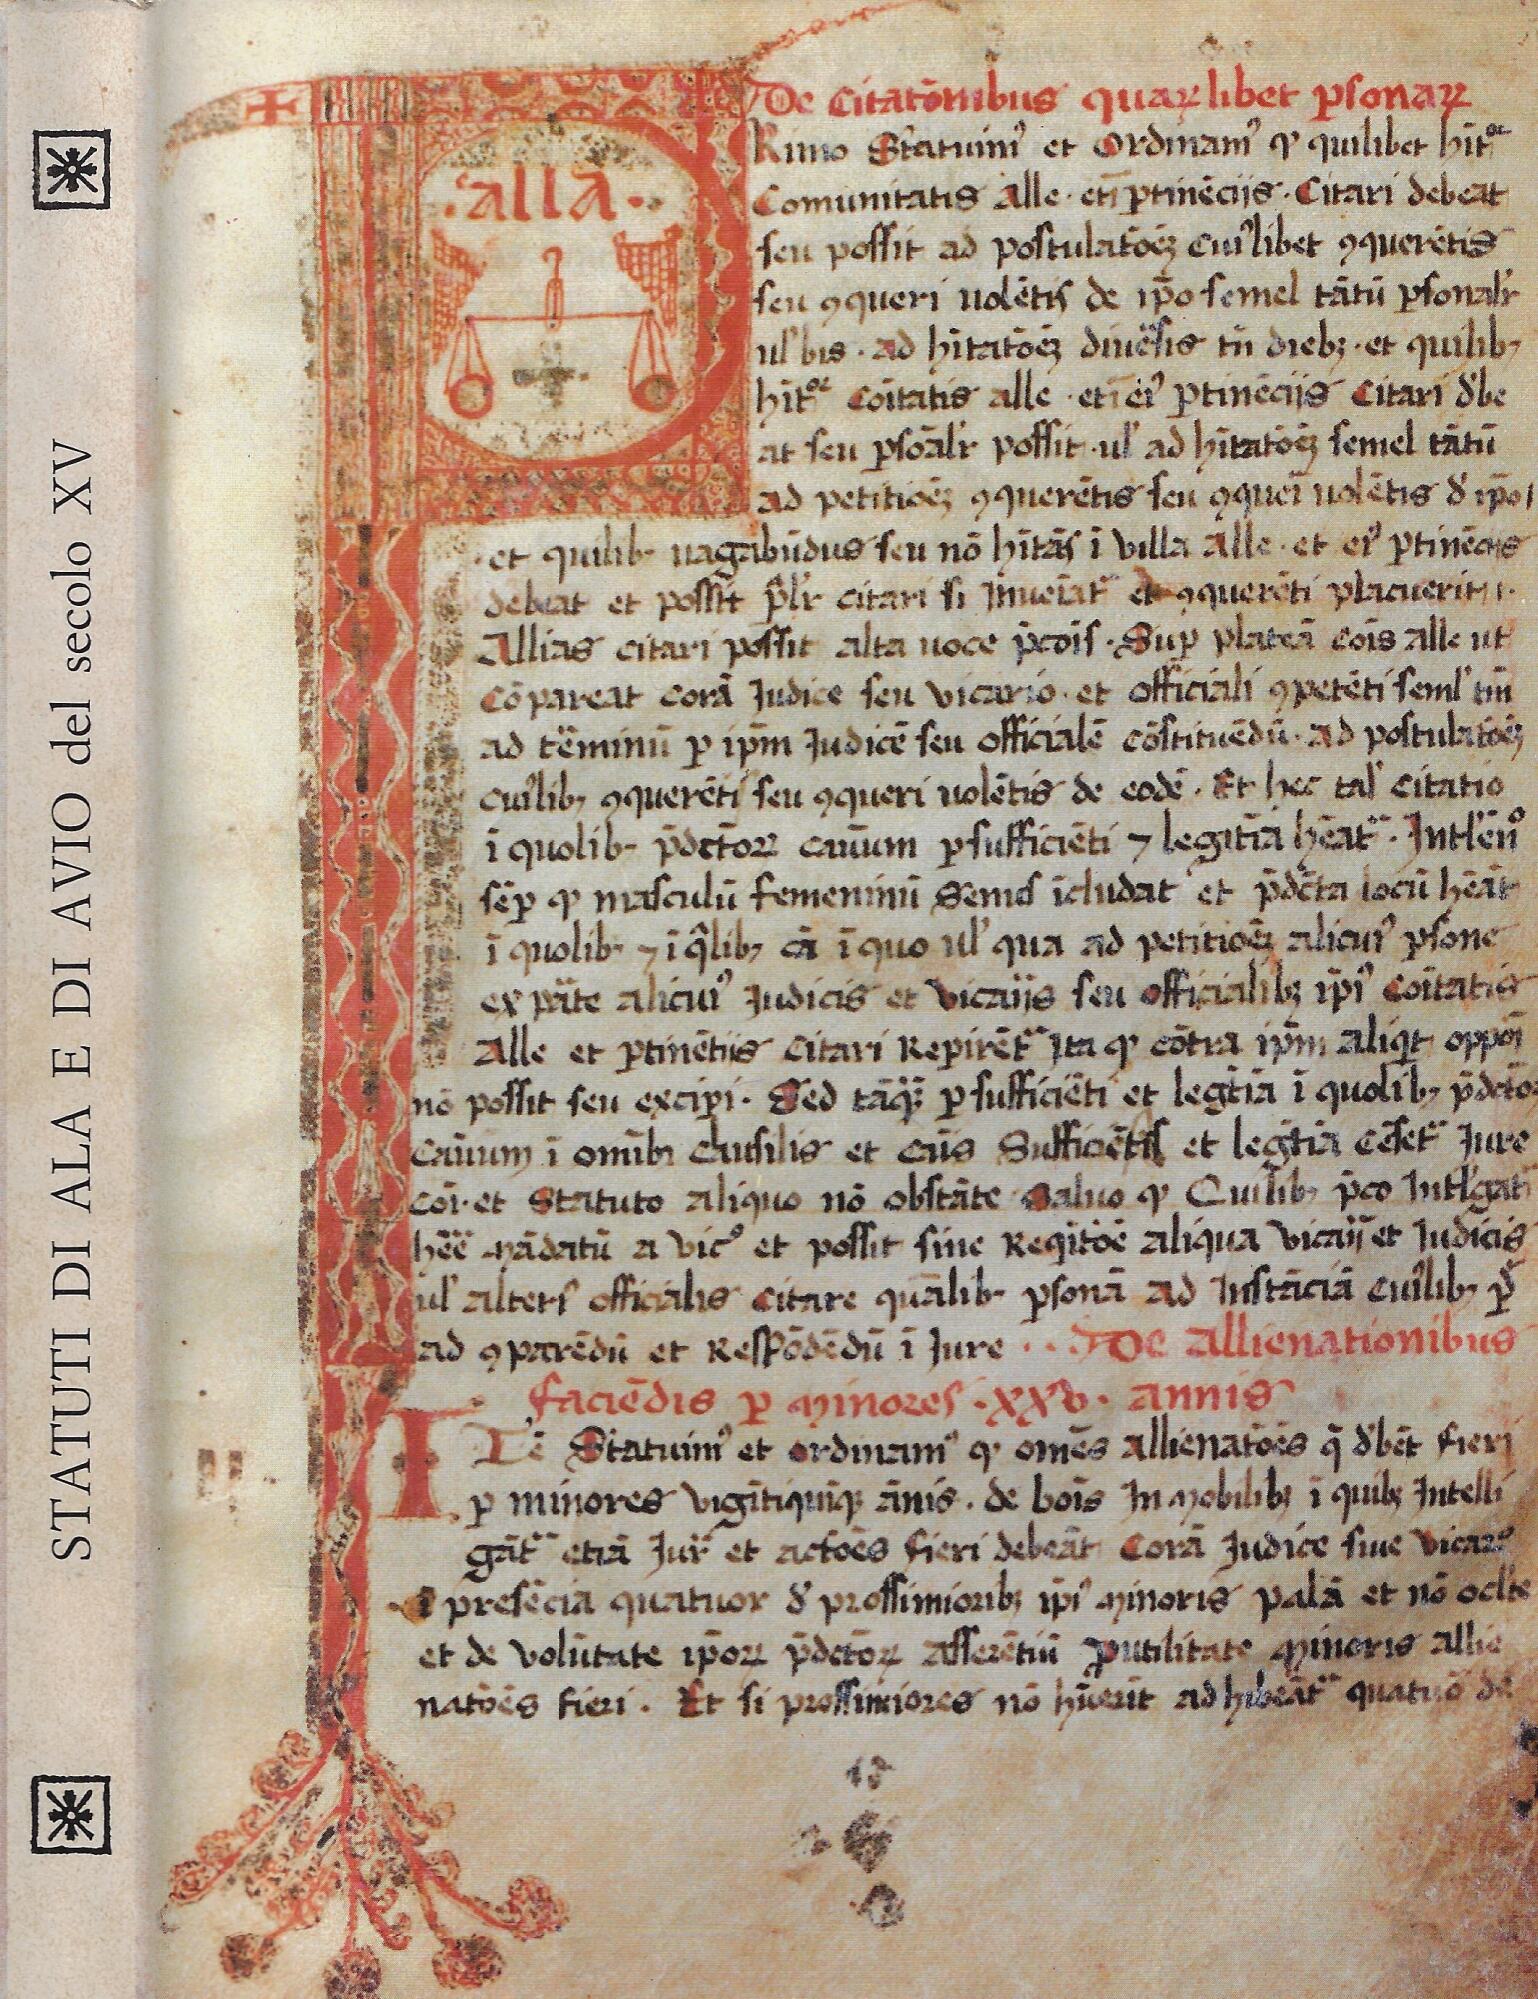 STATUTI DI ALA E DI AVIO del secolo XV
.alla.
De citatōnibus quaꝝlibet ꝑsonaꝝ
Rimo Statuimꝰ et Ordinamꝰ ꝙ quilibet hīt
Comunitatis Alle · etī ꝑtinēcijs · Citari debeat
seu possit ad postulatōēꝫ cuiꝰlibet ꝯquerētis
seu ꝯqueri uolētis de ip̄o semel tātū ꝑsonalr̄
ul' bis · ad hītatōēꝫ diuēsis tn̄ diebꝫ · et quilibꝫ
hīt cōītatis alle · etī eiꝰ ꝑtinēcijs Citari d'be
at seu ꝑsōalr̄ possit · ul' ad hītatōēꝫ semel tātū
ad petitiōēꝫ ꝯquerētis seu ꝯqueī uolētis d' ip̄o
· et quilibꝫ uagabūdus seu nō hītās ī villa Alle · et eiꝰ ꝑtinēcijs
debeat et possit citari si Inueīat et ꝯquerēti placuerit
Allias citari possit alta uoce p̄cōis · Suꝑ plateā cōis alle ut
Cōpareat corā Iudice seu vicario · et officiali ꝯpetēti seml' tm̄
ad tēminū ꝑ ip̄m Iudicē seu officialē cōstituēdū · ad postulatōēꝫ
cuiꝰlibꝫ ꝯquerēti seu ꝯqueri uolētis de eodē · Et hec tal' citatio
ī quolibꝫ p̄dctōꝝ cauum ꝑ sufficiēti ⁊ legitīa hēat · Intl'ēo
sēꝑ ꝙ masculū femeninū Genus īcludat et p̄dcta locū hēāt
ī quolibꝫ ⁊ ī q̄libꝫ cā ī quo ul' qua ad petitiōēꝫ alicuiꝰ ꝑsone
ex pāte alicuiꝰ Iudicis et vicaijs seu officialibꝫ ip̄iꝰ cōītatis
Alle et ꝑtinētijs citari Reꝑirēt Ita ꝙ cōtra ip̄m aliqt oppōi
nō possit seu exciꝑi · Sed tāq̄ꝫ ꝑ sufficiēti et legitīa ī quolibꝫ p̄dctōꝝ
cauum ī omībꝫ et sufficiētis et legitīa cēset Iure
cōi · et Statuto aliquo nō obstāte Saluo ꝙ Cuiꝰlibꝫ p̄co Intl'gati
hēē mādatū a vicꝰ et possit sine Reqitōē aliqua vicaij et Iudicis
ul' alterꝰ officialis citare quālibꝫ ꝑsonā ad Instāciā cuiꝰlibꝫ
ad ꝯparēdū et Respōdēdū ī Iure · · De allienationibus
faciēdis ꝑ minores · xxv · annis
ITē Statuimꝰ et ordinamꝰ ꝙ omēs allienatōēs q̄ d'bēt fieri
ꝑ minores vigītiquīqꝫ ānis · de bōis In mobilibꝫ ī quibꝫ Intelli
gāt etiā Iur et actōēs fieri debeāt Corā Iudice siue vicaꝰ
ī presēcia quatuor d' prossimioribꝫ ip̄iꝰ minoris palā et nō oclte
et de volūtate ip̄oꝝ p̄dctōꝝ asserētiū ꝓ utilitate minoris allie
natōēs fieri · Et si prossimiores nō hūerit adhibeāt quatuō de